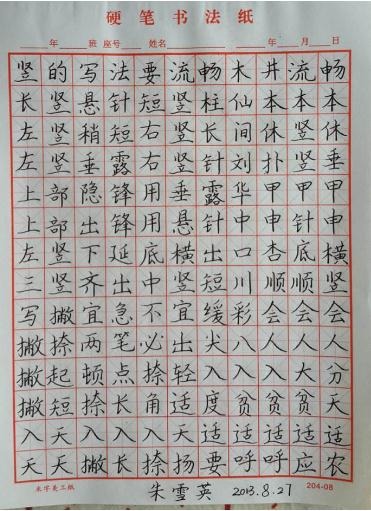 硬笔书法纸
年 班 座号 姓名 年 月 日
竖的写法要流畅木井流畅
长竖悬针短竖柱仙本本本
左竖稍短右竖长间休竖休
左竖垂露右竖针刘扑竖垂
上部隐锋用垂露华甲甲甲
上部出锋用悬针中申针申
左竖下延底横出口杏底横
三竖齐出中竖短川顺顺竖
写撇宜急不宜缓彩会会会
撇捺两笔必出尖八人人人
撇起顿点捺轻入入入大分
撇短捺长角适度贫贫贫天
入天入入入天适适适适适
天天撇长捺扬要呼呼应农
米字美工纸 朱雪英 2013.8.27 204-08